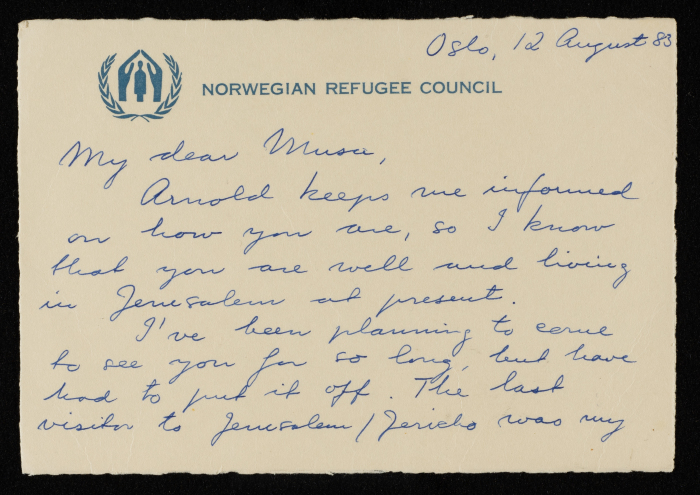 Oslo, 12 August 83
NORWEGIAN REFUGEE COUNCIL
My dear Musa,
Arnold keeps me informed
on how you are, so I know
that you are well and living
in Jerusalem at present.
I've been planning to come
to see you for so long, but have
had to put it off. The last
visitor to Jerusalem/Jericho was my